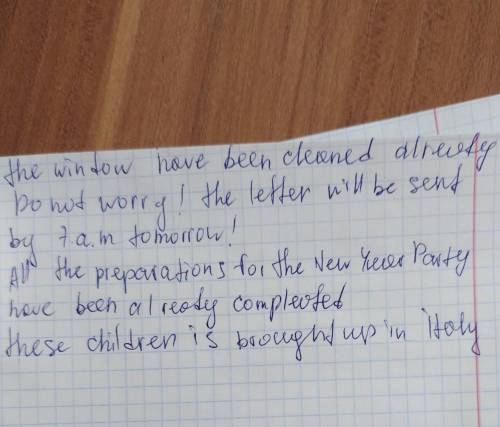 the window have been cleaned already
Do not worry! the letter will be sent
by 7.a.m tomorrow!
All the preparations for the New Year Party
have been already compleated
these children is brought up in italy